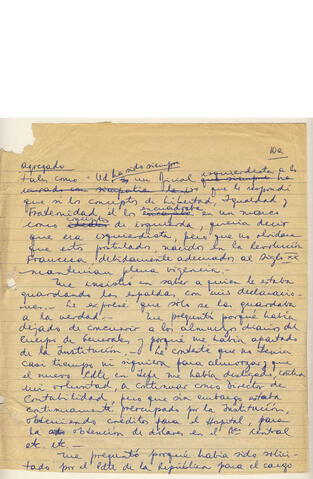 10a
agregado
ha sido siempre izquierdista a lo
tales como "Ud es un Oficial que siempre ha
mirado con simpatía la que le respondí
que si los conceptos de Libertad, Igualdad y
Fraternidad él los encuadraba en un marxes
conceptos
como de izquierda, quería decir
que era izquierdista, pero que no olvidara
que estos postulados, nacidos en la Revolución
Francesa, debidamente adecuados al Siglo XX
mantenían plena vigencia.-
Me insistió en saber a quien le estaba
guardando las espaldas con mis declaracio-
nes.- Le expresé que sólo se las guardaba
a la verdad.- Me preguntó porqué había
dejado de concurrir a los almuerzos diarios del
Cuerpo de Generales y porqué me había apartado
de la institución.- Le contesté que no tenía
casi tiempo ni siquiera para almorzar; que
el nuevo Cdte en Jefe me había destinado, contra
mi voluntad, a continuar como Director de
Contabilidad, pero que sin embargo estaba
continuamente preocupado por la Institución,
obteniendo créditos para el Hospital, para
la obtención de dólares en el Bco Central
etc. etc.-
Me preguntó porqué había sido solici-
tado por el Pdte de la República para el cargo